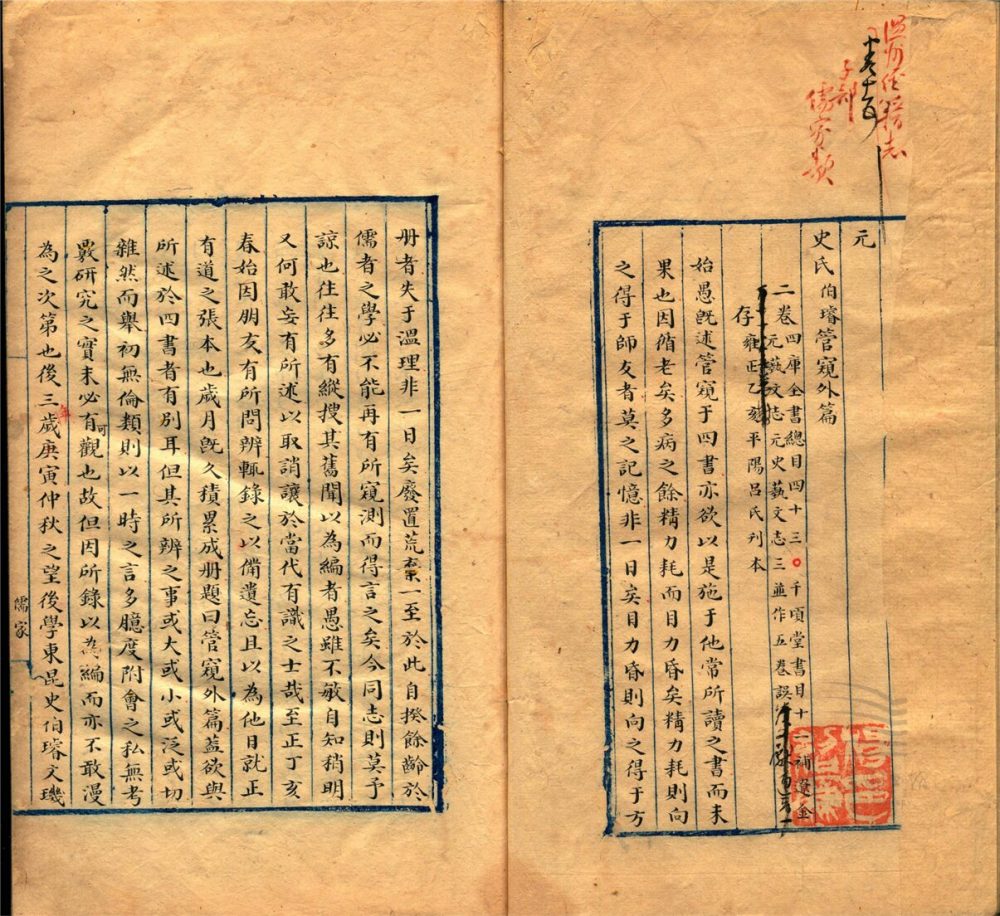 溫州經籍志
子部
儒家類
元
史氏伯璿管窺外篇
二卷四庫全書總目四十三千頃堂書目十一補遼金
元藝文志元史藝文志三並作五卷誤
存雍正乙刻平陽呂氏刊本
始愚旣述管窺于四書亦欲以是施于他常所讀之書而未
果也因循老矣多病之餘精力耗而目力昏矣精力耗則向
之得于師友者莫之記憶非一日矣目力昏則向之得于方
册者失于溫理非一日矣廢置荒棄一至於此自揆餘齡於
儒者之學必不能再有所窺測而得言之矣今同志則莫予
諒也往往多有縱搜其舊聞以為編者愚雖不敏自知稍明
又何敢妄有所述以取誚讓於當代有識之士哉至正丁亥
春始因朋友有所問辨輒錄之以備遺忘且以為他日就正
有道之張本也歲月旣久積累成册題曰管窺外篇蓋欲與
所述於四書者有別耳但其所辨之事或大或小或泛或切
雜然而舉初無倫類則以一時之言多臆度附會之私無考
覈研究之實未必有可觀也故但因所錄以為編而亦不敢漫
為之次第也後三歲庚寅仲秋之望後學東昆史伯璿文璣
儒家